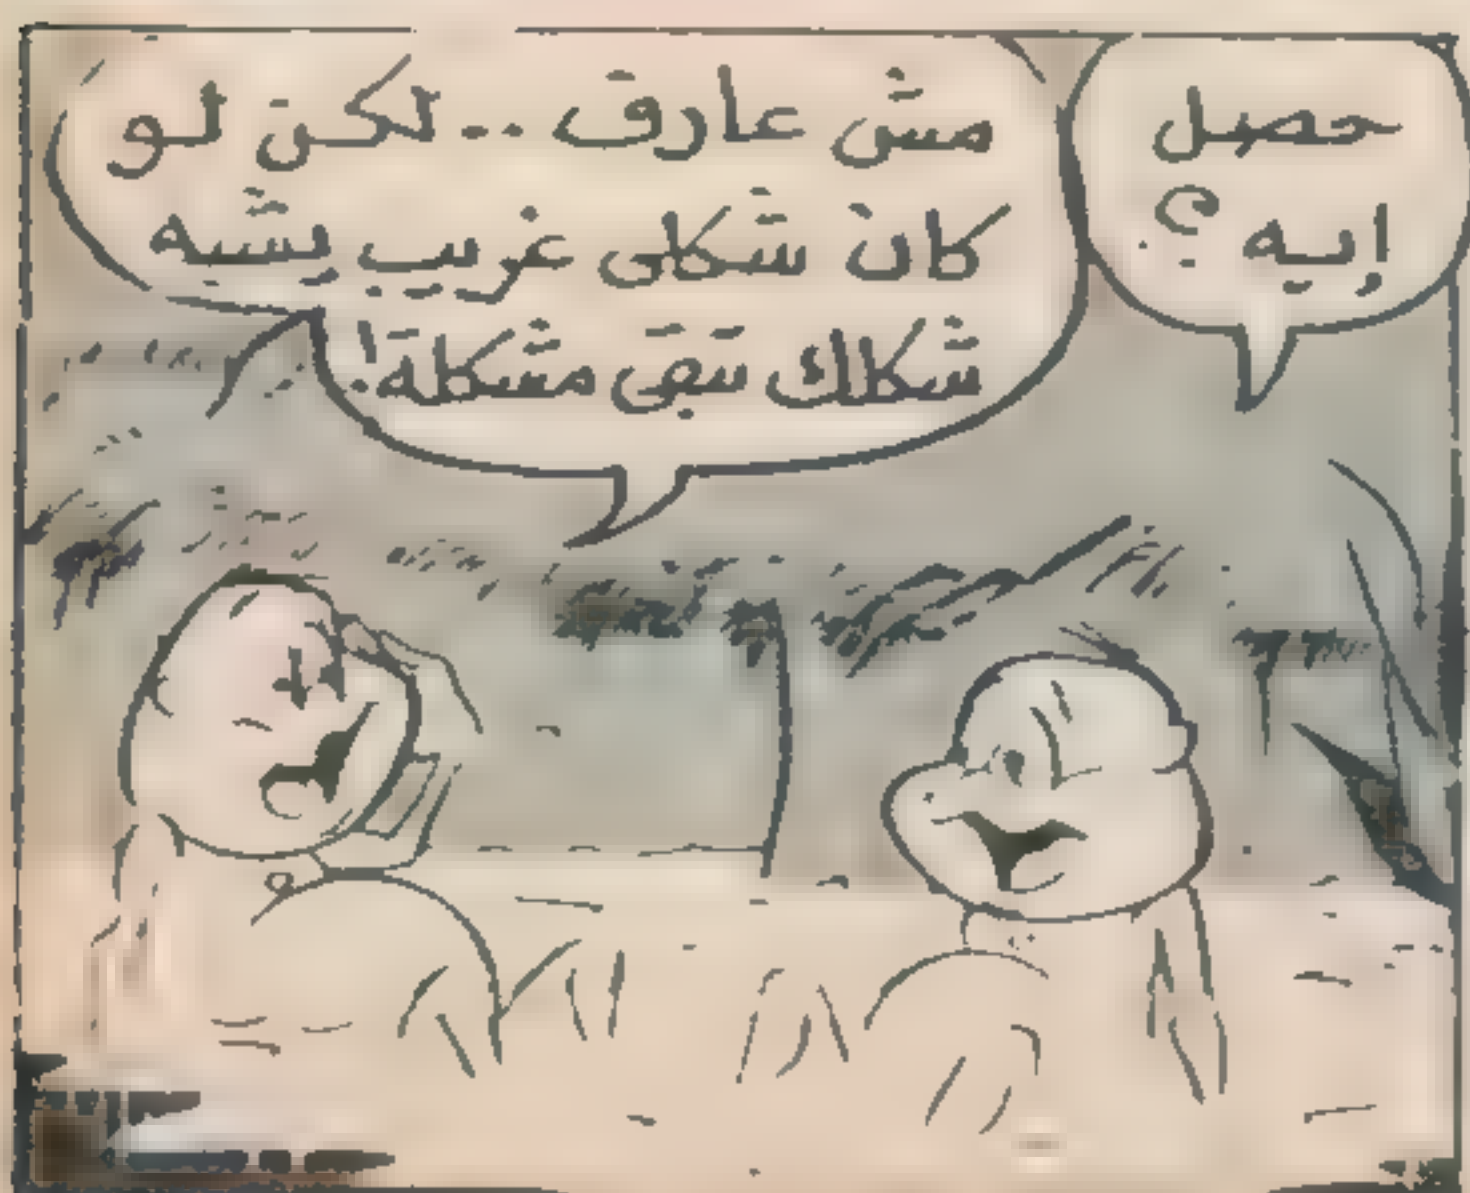 حصل
إيه ؟
مش عارف .. لكن لو
كان شكلى غريب يشبه
شكلك تبقى مشكلة!